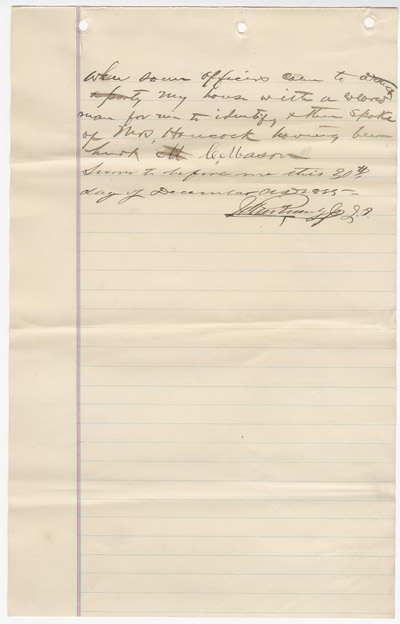 when some officers came to
my house with a colored
man for me to identify & then spoke
of Mrs, Hancock having been
hurt C. Mason
Sworn to before me this 30th
day of December AD 1885-
J.P.